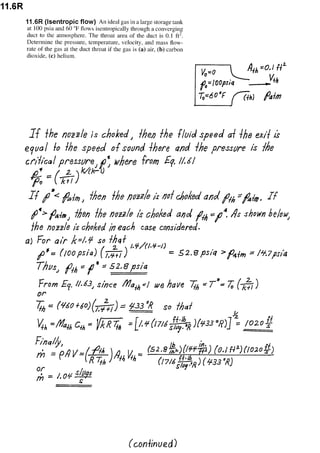 11.6R
11.6R (Isentropic flow) An ideal gas in a large storage tank
at 100 psia and 60 °F flows isentropically through a converging
duct to the atmosphere. The throat area of the duct is 0.1 ft².
Determine the pressure, temperature, velocity, and mass flow-
rate of the gas at the duct throat if the gas is (a) air, (b) carbon
dioxide, (c) helium.
V₀=0
p₀=100psia
T₀=60°F
A_th=0.1 ft²
V_th
(th) p_atm
If the nozzle is choked, then the fluid speed at the exit is
equal to the speed of sound there and the pressure is the
critical pressure, p*, where from Eq. 11.61
p*/p₀ = (2/(k+1))^(k/(k-1))
If p* < p_atm, then the nozzle is not choked and p_th = p_atm. If
p* > p_atm, then the nozzle is choked and p_th = p*. As shown below,
the nozzle is choked in each case considered.
a) For air k=1.4 so that
p* = (100 psia)(2/(1.4+1))^(1.4/(1.4-1)) = 52.8 psia > p_atm = 14.7psia
Thus, p_th = p* = 52.8 psia
From Eq. 11.63, since Ma_th = 1 we have T_th = T* = T₀ (2/(k+1))
or
T_th = (460+60)(2/(1.4+1)) = 433 °R so that
V_th = Ma_th c_th = √(k R T_th) = [1.4 (1716 ft·lb/(slug·°R))(433 °R)]^½ = 1020 ft/s
Finally,
ṁ = ρAV = (p_th/(R T_th)) A_th V_th = (52.8 lb/in²)(144 in²/ft²)(0.1 ft²)(1020 ft/s) / (1716 ft·lb/(slug·°R))(433 °R)
or
ṁ = 1.04 slugs/s
(continued)